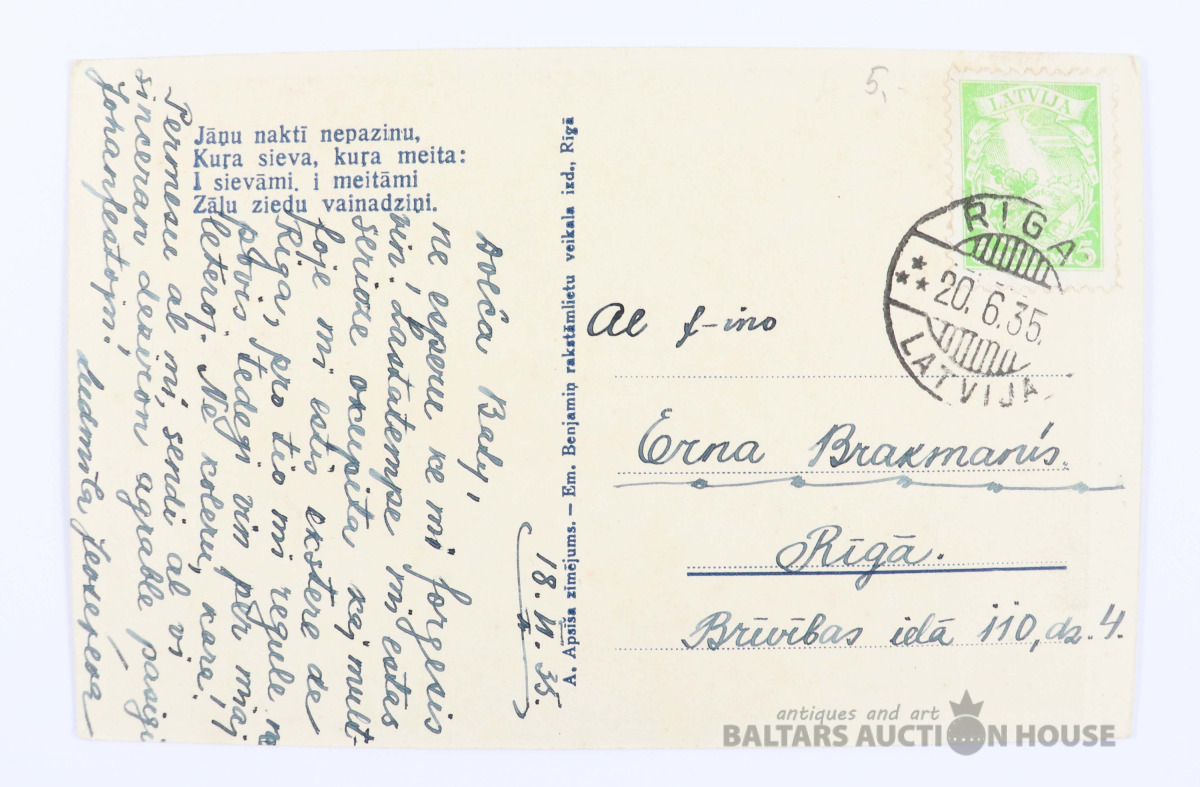 Jāņu naktī nepazinu,
Kuŗa sieva, kuŗa meita:
I sievāmi, i meitāmi
Zāļu ziedu vainadziņi.
18.VI.35.
Dolĉa Baby,
ne esperu ke mi forgesis
vin, lastatempe mi estas
serioze okupita kaj mult-
foje mi estis ekstere de
Riga, pro tio mi regule ne
povis tedegi vin per miaj
leteroj. Ne koleru, kara!
Permesu al mi, sendi al vi
sinceran deziron agrable pasigi
Johanfestojn!
Ludmila Jevsejeva
A. Apsīša zīmējums. — Em. Benjamiņ rakstāmlietu veikala izd., Rīgā
5,-
LATVIJA
5
RIGA
20.6.35.
LATVIJA
Al f-ino
Erna Brakmanis.
Rīgā.
Brīvības ielā 110, dz. 4.
antiques and art
BALTARS AUCTION HOUSE